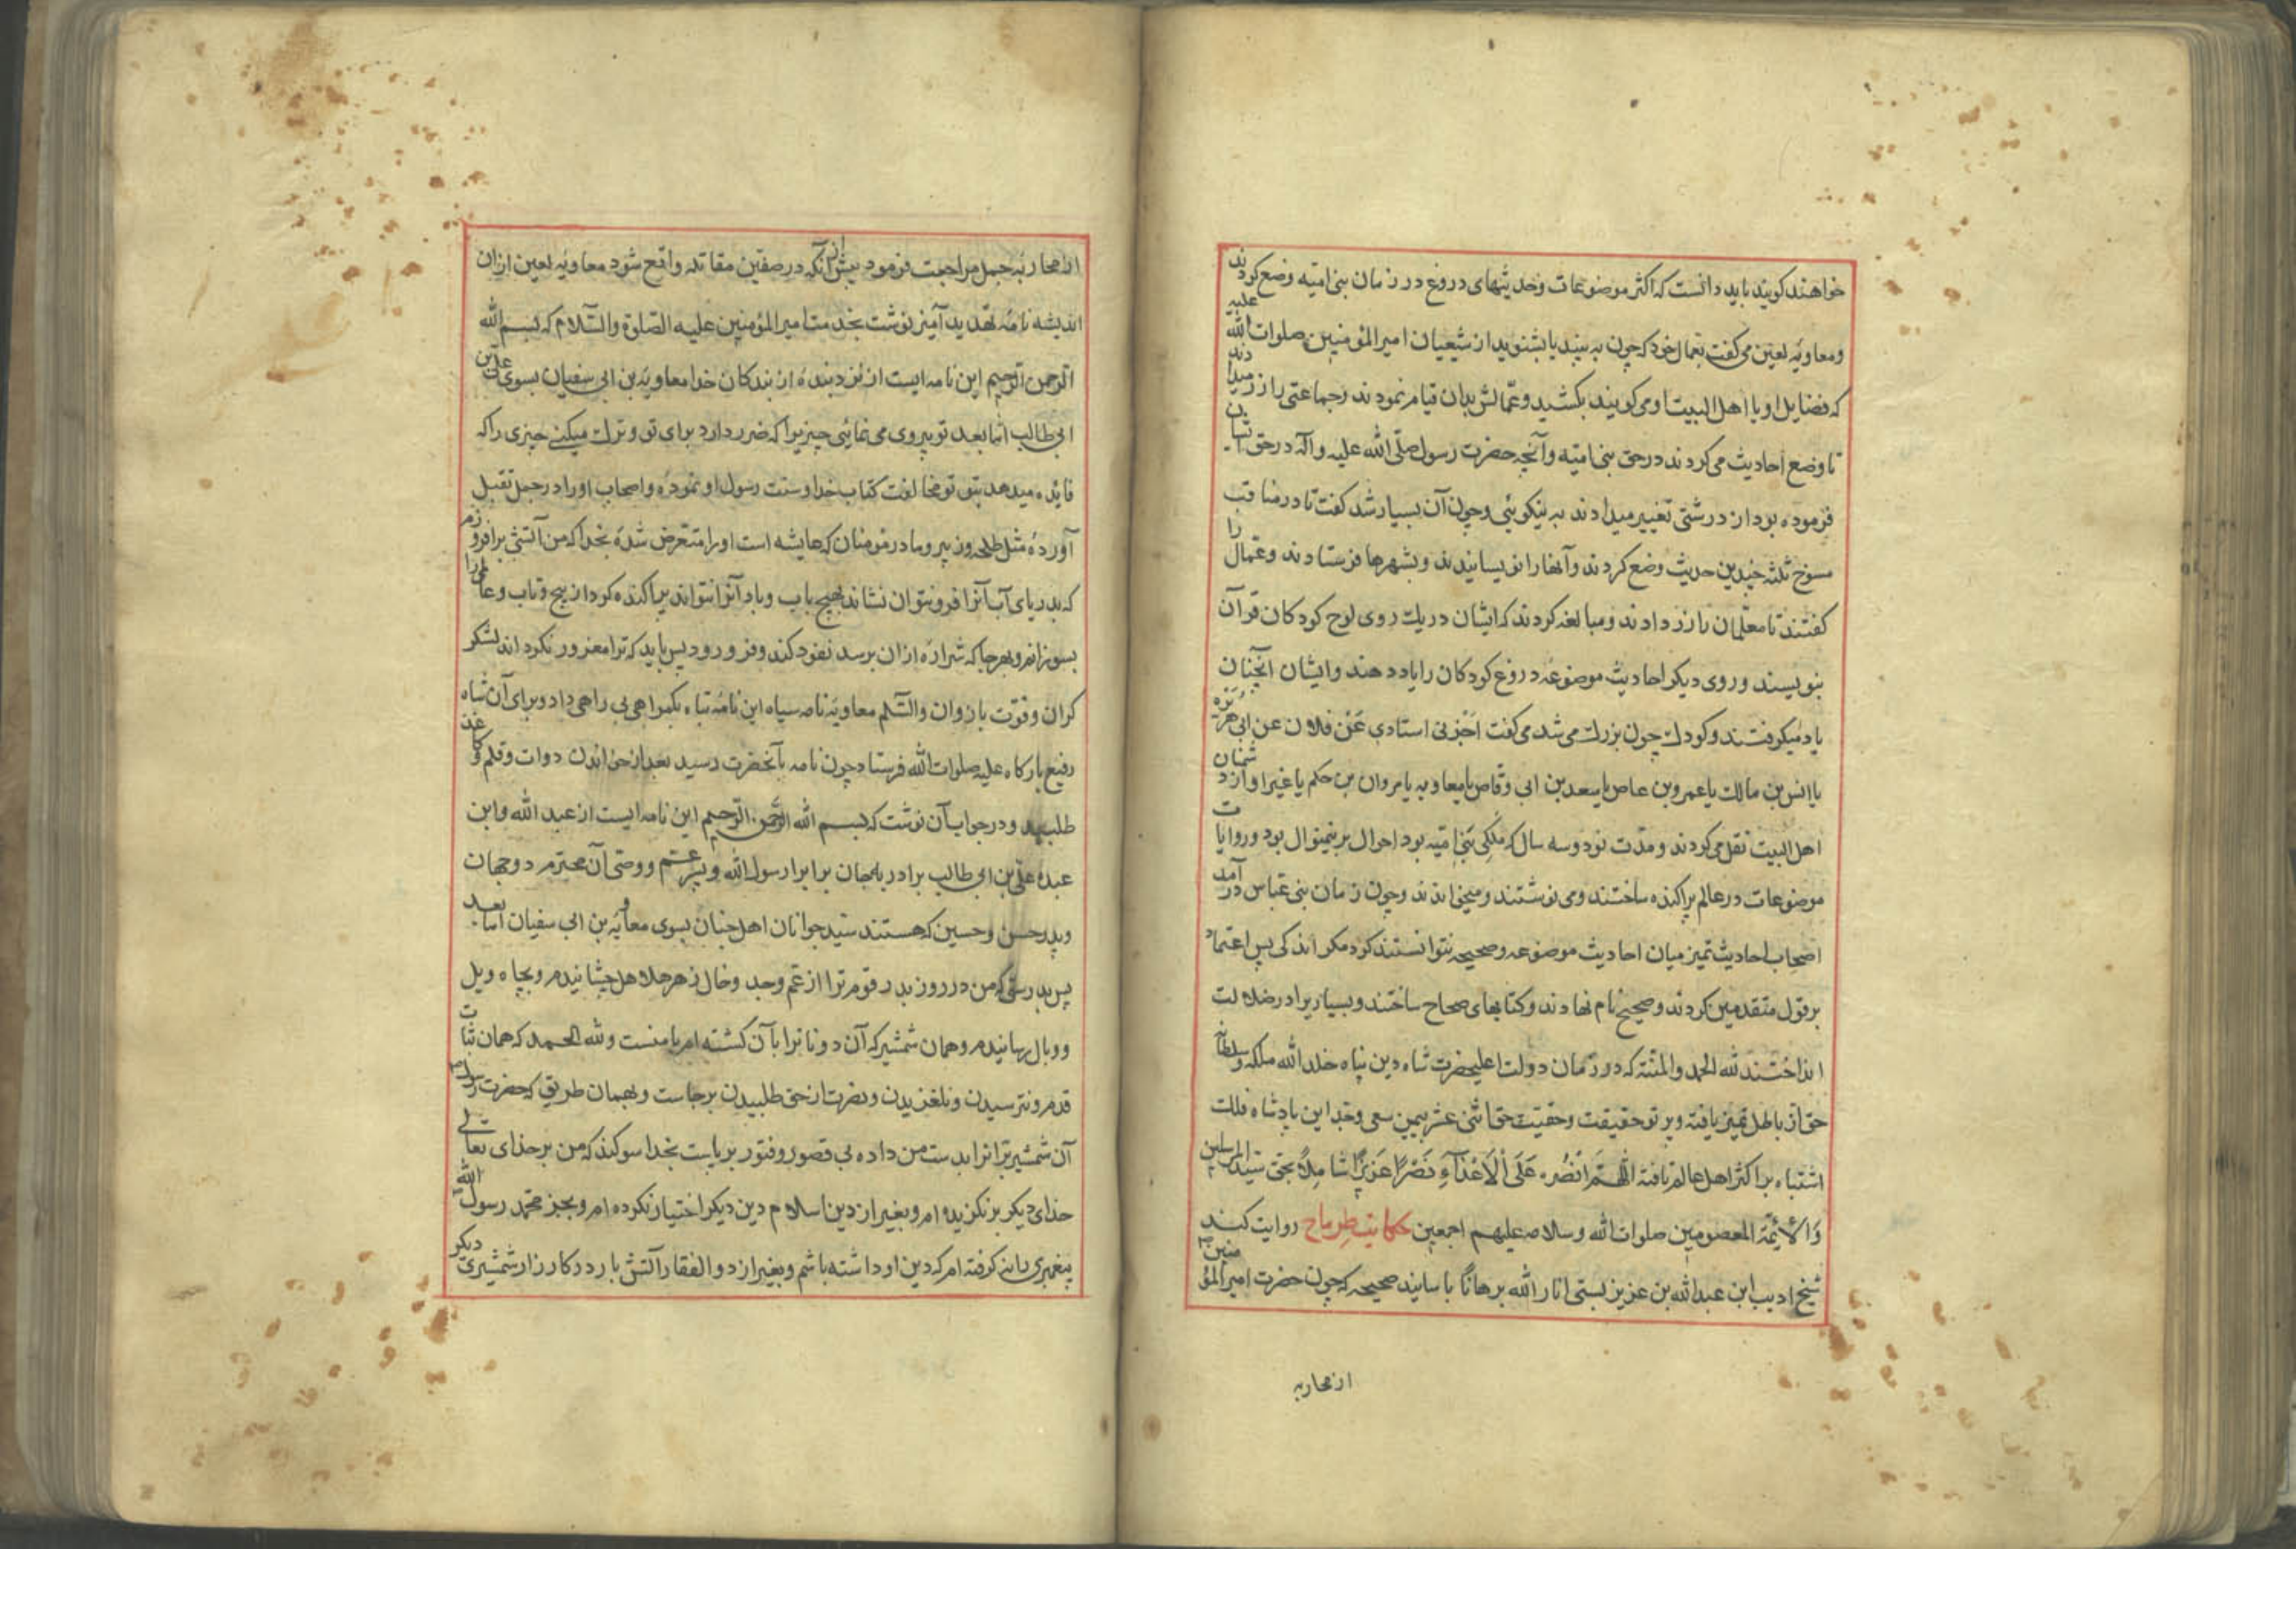 خواهند كويند بايد دانست كه اكثر موضوعات وحديثهاى دروغ در زمان بنى اميّه وضع كردند
ومعاويهٔ لعين مى كفت بعمال خود كه چون به بينيد يا بشنويد از شيعيان امير المؤمنين صلوات الله عليه
كه فضايل او يا اهل البيت او مى كويند بكشيد وعمّالش بدان قيام نمودند وجماعتى را زر ميدادند
تا وضع احاديث مى كردند در حق بنى اميّه وآنچه حضرت رسول صلّى الله عليه وآله در حق ايشان
فرموده بود از درشتى تغيير ميدادند به نيكوئى وچون آن بسيار شد كفت تا در مناقب
مسوخ ثلثه چندين حديث وضع كردند وآنها را نويسانيدند وبشهرها فرستادند وعمّال را
كفتند تا معلّمان را زر دادند ومبالغه كردند كه ايشان در يك روى لوح كودكان قرآن
بنويسند وروى ديكر احاديث موضوعه دروغ كودكان را ياد دهند وايشان آنچنان
ياد ميكرفتند وكودك چون بزرك مى شد مى كفت اخبرنى استادى عن فلان عن ابى هريره
يا انس بن مالك يا عمرو بن عاص يا سعد بن ابى وقاص يا معاويه يا مروان بن حكم يا غير او از دشمنان
اهل البيت نقل مى كردند ومدّت نود وسه سال كه ملكى بنى اميّه بود احوال برينمنوال بود وروايات
موضوعات در عالم پراكنده ساختند ومى نوشتند وميخواندند وچون زمان بنى عباس در آمد
اصحاب احاديث تميز ميان احاديث موضوعه وصحيحه نتوانستند كرد مكر اندكى پس اعتماد
بر قول متقدمين كردند وصحيح نام نهادند وكتابهاى صحاح ساختند وبسيار يرا در ضلالت
انداختند لله الحمد والمنّته كه در زمان دولت اعليحضرت شاه دين پناه خلد الله ملكه وسلطانه
حق از باطل تميز يافته وپرتو حقيقت وحقيّت حق اثنى عشر بيمن سعى وجد اين پادشاه فلك
اشتباه بر اكثر اهل عالم تافته اللّهمّ انصره على الاعداء نصراً عزيزاً شاملاً بحق سيّد المرسلين
والائمّة المعصومين صلوات الله وسلامه عليهم اجمعين حكايت طرماح روايت كند
شيخ اديب ابن عبدالله بن عزيز بستى انار الله برهاناً باسانيد صحيحه كه چون حضرت امير المؤمنين
از محاربه
از محاربهٔ جمل مراجعت فرمود پيش از آنكه در صفين مقاتله واقع شود معاويهٔ لعين ازان
انديشه نامهٔ تهديد آميز نوشت بخدمت امير المؤمنين عليه الصّلوة والسّلام كه بسم الله
الرّحمن الرّحيم اين نامه ايست از نزد بنده از بندكان خدا معاويهٔ بن ابى سفيان بسوى على بن
ابى طالب امّا بعد تو پيروى مى نمائى چيزيرا كه ضرر دارد براى تو وترك ميكنى چيزى را كه
فايده ميدهد بتو تو مخالفت كتاب خدا وسنت رسول او نمودهٔ واصحاب او را در جمل بقتل
آوردهٔ مثل طلحه وزبير ومادر مومنان كه عايشه است او را متعرض شدهٔ بخدا كه من آتشى برافروزم
كه بدرياى آب آنرا فرو نتوان نشاند بهيچ باب وباد آنرا نتواند پراكنده كرد از پيچ وتاب
بسوزاند وبهر جا كه شرارهٔ ازان برسد نفوذ كند وفرو رود پس بايد كه ترا مغرور نكرداند لشكر
كران وقوّت بازوان والسّلم معاويهٔ نامه سياه اين نامهٔ تباه بكمراهى بى راهى داد وبراى آن شاه
رفيع باركاه عليه صلوات الله فرستاد چون نامه بآنحضرت رسيد بعد از خواندن دوات وقلم وكاغذ
طلبيد ودر جواب آن نوشت كه بسم الله الرّحمن الرّحيم اين نامه ايست از عبد الله وابن
عبده على بن ابى طالب برادر بلهجان برابر رسول الله وپسر عم ووصى آن محترم دو جهان
وپدر حسن وحسين كه هستند سيّد جوانان اهل جنان بسوى معاويهٔ بن ابى سفيان امّا بعد
پس بدرستى كه من در روز بدر قوم ترا از عم وجد وخال زهر هلاهل چشانيدم وبچاه ويل
ووبال رسانيدم وهمان شمشير كه آن دونانرا بآن كشته ام با منست ولله الحمد كه همان ثبات
قدم ونترسيدن ونلغزيدن ونصرت از حق طلبيدن برجاست وبهمان طريق كه حضرت رسول
آن شمشير برانرا بدست من داده بى قصور وفتور برپاست بخدا سوكند كه من بر خداى تعالى
خداى ديكر برنكزيده ام وبغير از دين اسلام دين ديكر اختيار نكرده ام وبجز محمد رسول الله
پيغمبرى را نه كرفته ام كه دين او داشته باشم وبغير از ذو الفقار آتش بار در كارزار شمشيرى ديكر